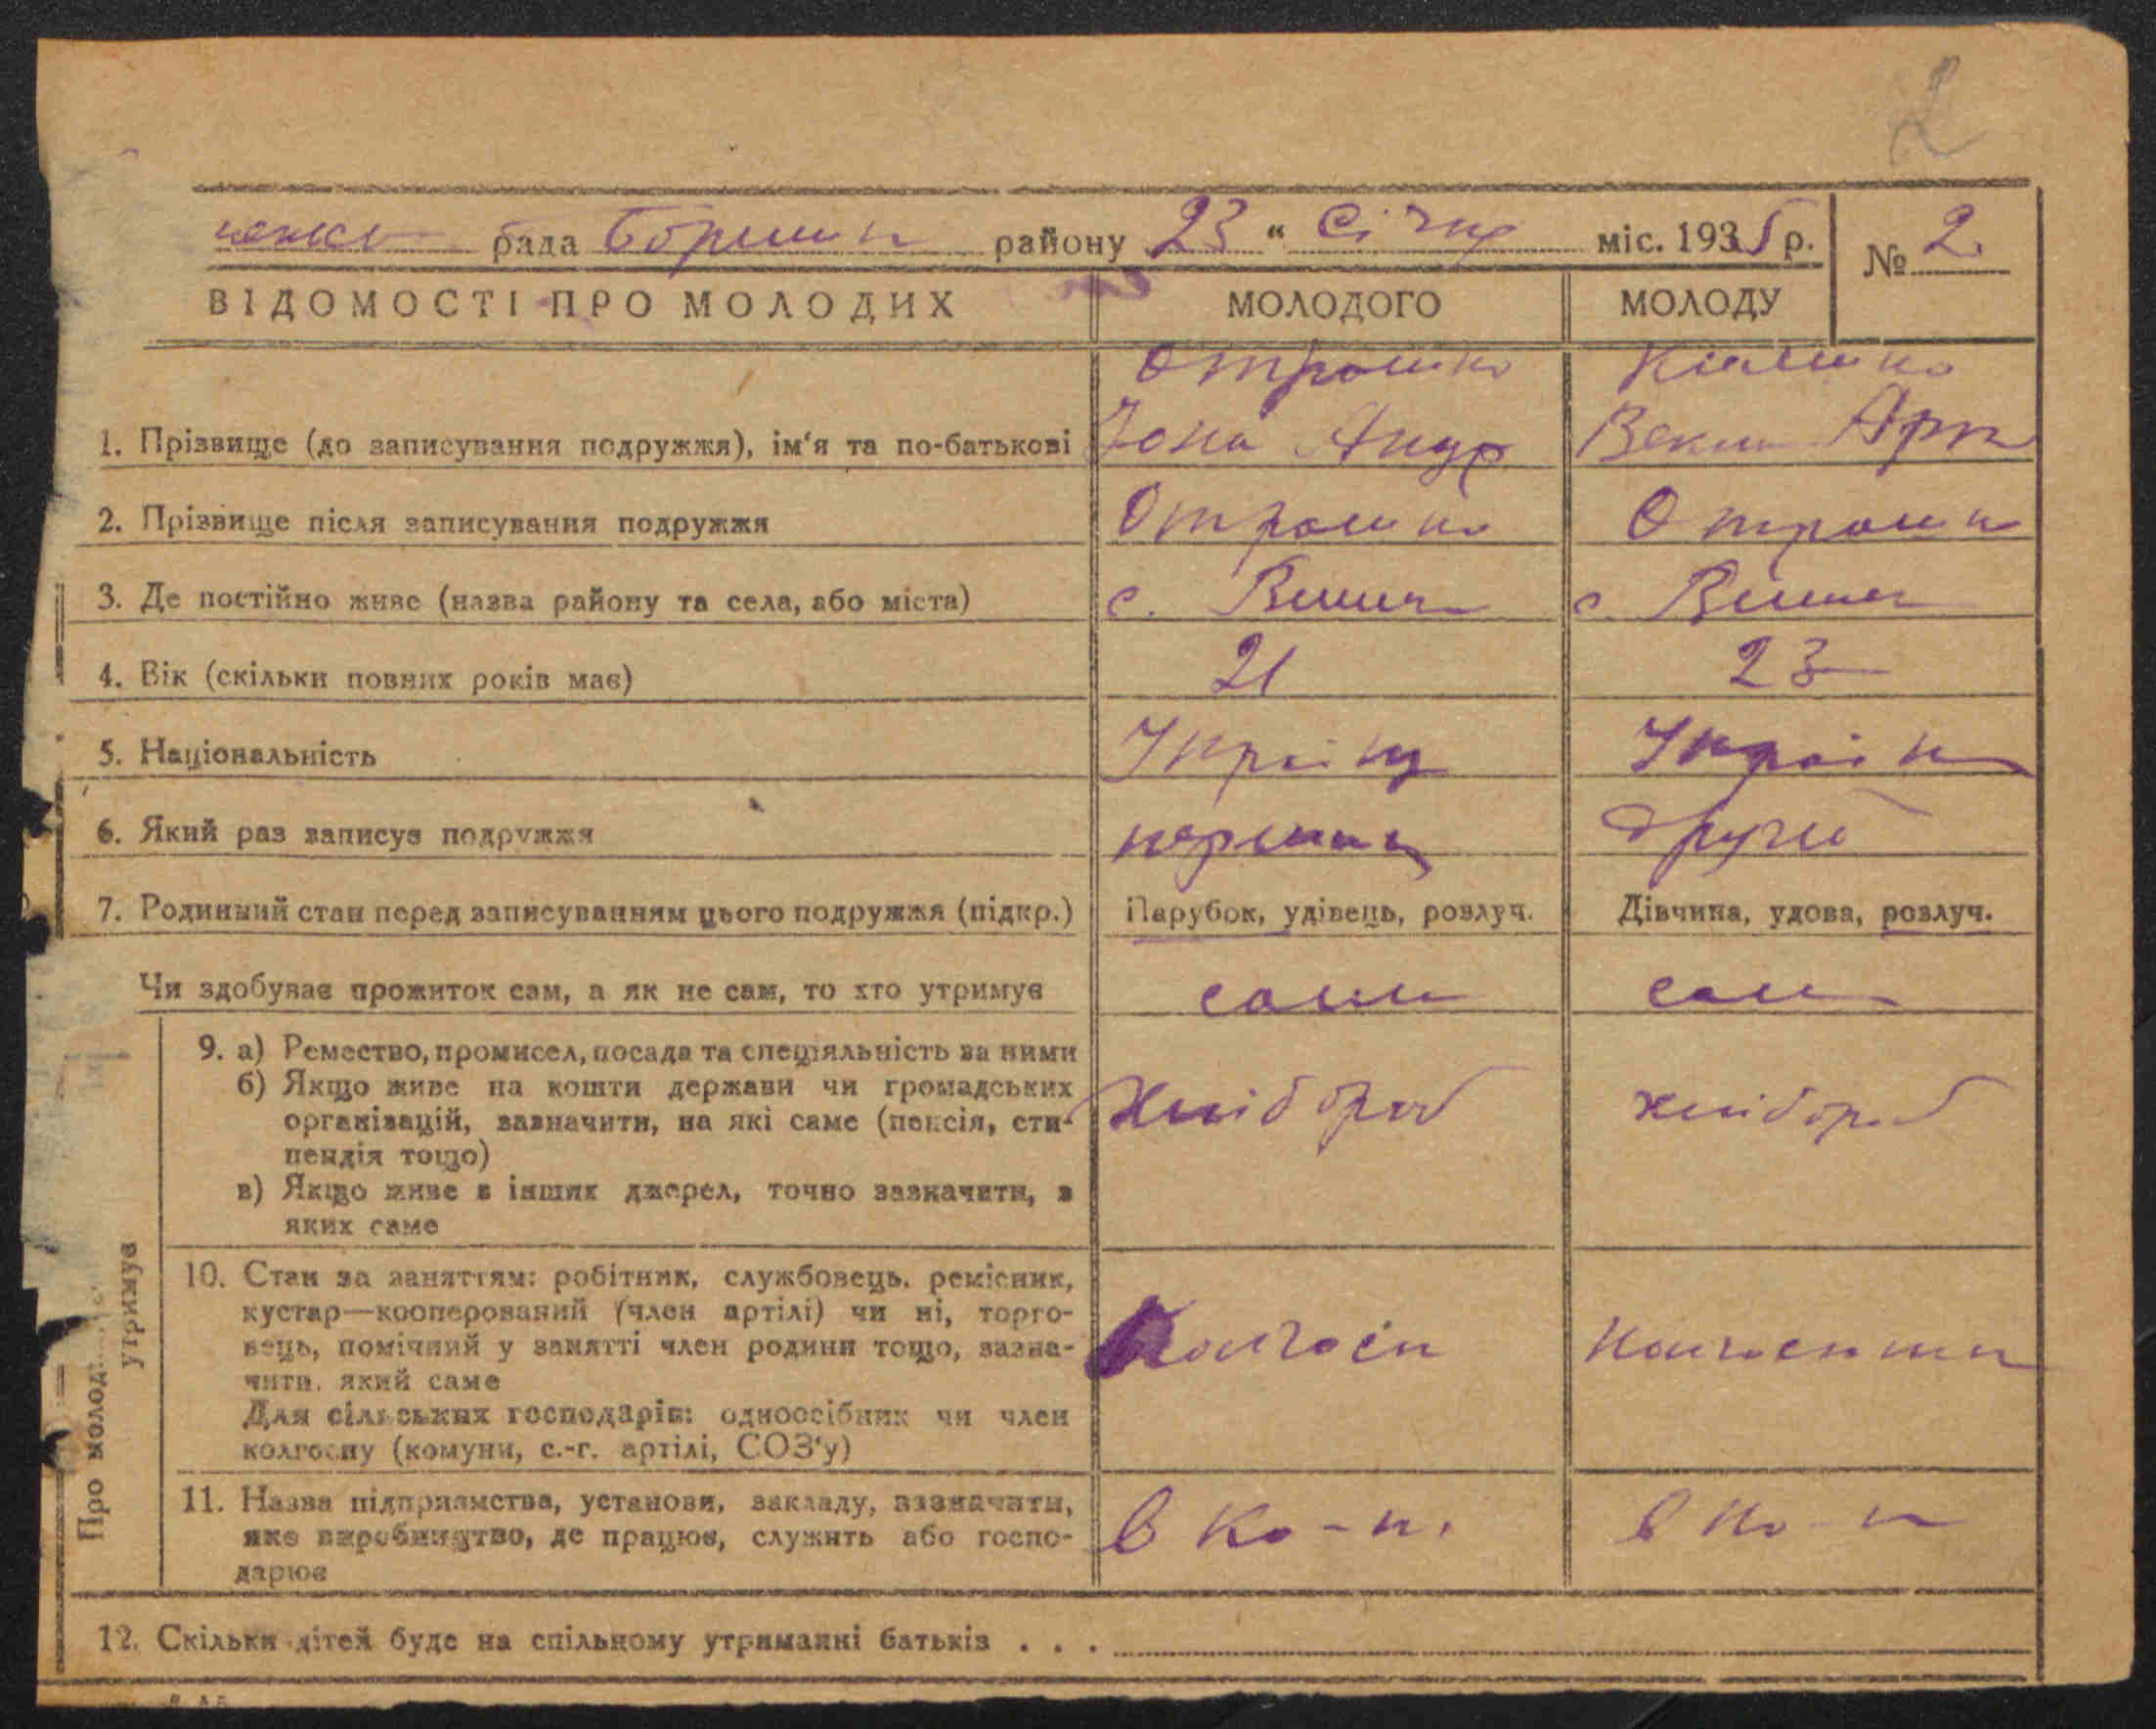 2
рада Боришп району 23 " Січня міс. 1935 р. № 2
ВІДОМОСТІ ПРО МОЛОДИХ МОЛОДОГО МОЛОДУ
Отрошко
1. Прізвище (до записування подружжя), ім'я та по-батькові Йона Андр
2. Прізвище після записування подружжя Отрошко Отрошк
3. Де постійно живе (назва району та села, або міста) с. с.
4. Вік (скільки повних років має) 21 23
5. Національність Україн Україн
6. Який раз записує подружжя перший другий
7. Родинний стан перед записуванням цього подружжя (підкр.) Парубок, удівець, розлуч. Дівчина, удова, розлуч.
Чи здобуває прожиток сам, а як не сам, то хто утримує сам сам
9. а) Ремество, промисел, посада та спеціяльність за ними
б) Якщо живе на кошти держави чи громадських
організацій, зазначити, на які саме (пенсія, сти- Хлібороб хлібороб
пендія тощо)
в) Якщо живе з інших джерел, точно зазначити, з
яких саме
утримує
10. Стан за заняттям: робітник, службовець, ремісник,
кустар—кооперований (член артілі) чи ні, торго-
вець, помічний у занятті член родини тощо, зазна- Колгосп
чити, який саме
Для сільських господарів: одноосібник чи член
колгоспу (комуни, с.-г. артілі, СОЗ'у)
Про молод
11. Назва підприямства, установи, закладу, зазначити,
яке виробництво, де працює, служить або госпо- в ко-п. в ко-п
дарює
12. Скільки дітей буде на спільному утриманні батьків . . .